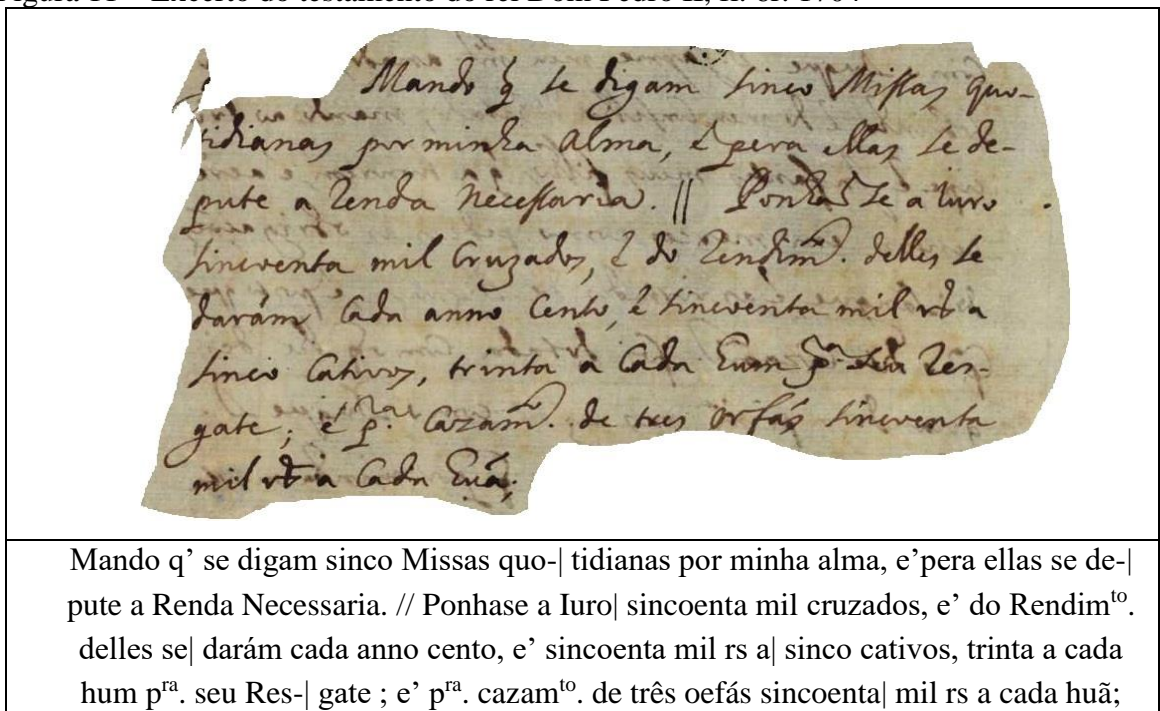 Excerto do testamento do rei Dom Pedro II,
Mando q̃ se digam sinco Missas quo-
tidianas por minha alma, e pera ellas se de-
pute a Renda Necessaria. // Ponhaõ se a Iuro
sincoenta mil Cruzados, e do Rendimᵗᵒ. delles se
darám Cada anno Cento, e sincoenta mil rs a
sinco Cativos, trinta a Cada hum pᵃ. seu Res-
gate; e pᵃ. Cazamᵗᵒ. de tres orfás sincoenta
mil rs a Cada huã;
Mando q’ se digam sinco Missas quo-| tidianas por minha alma, e’pera ellas se de-|
pute a Renda Necessaria. // Ponhase a Iuro| sincoenta mil cruzados, e’ do Rendimᵗᵒ.
delles se| darám cada anno cento, e’ sincoenta mil rs a| sinco cativos, trinta a cada
hum pʳᵃ. seu Res-| gate ; e’ pʳᵃ. cazamᵗᵒ. de três oefás sincoenta| mil rs a cada huã;